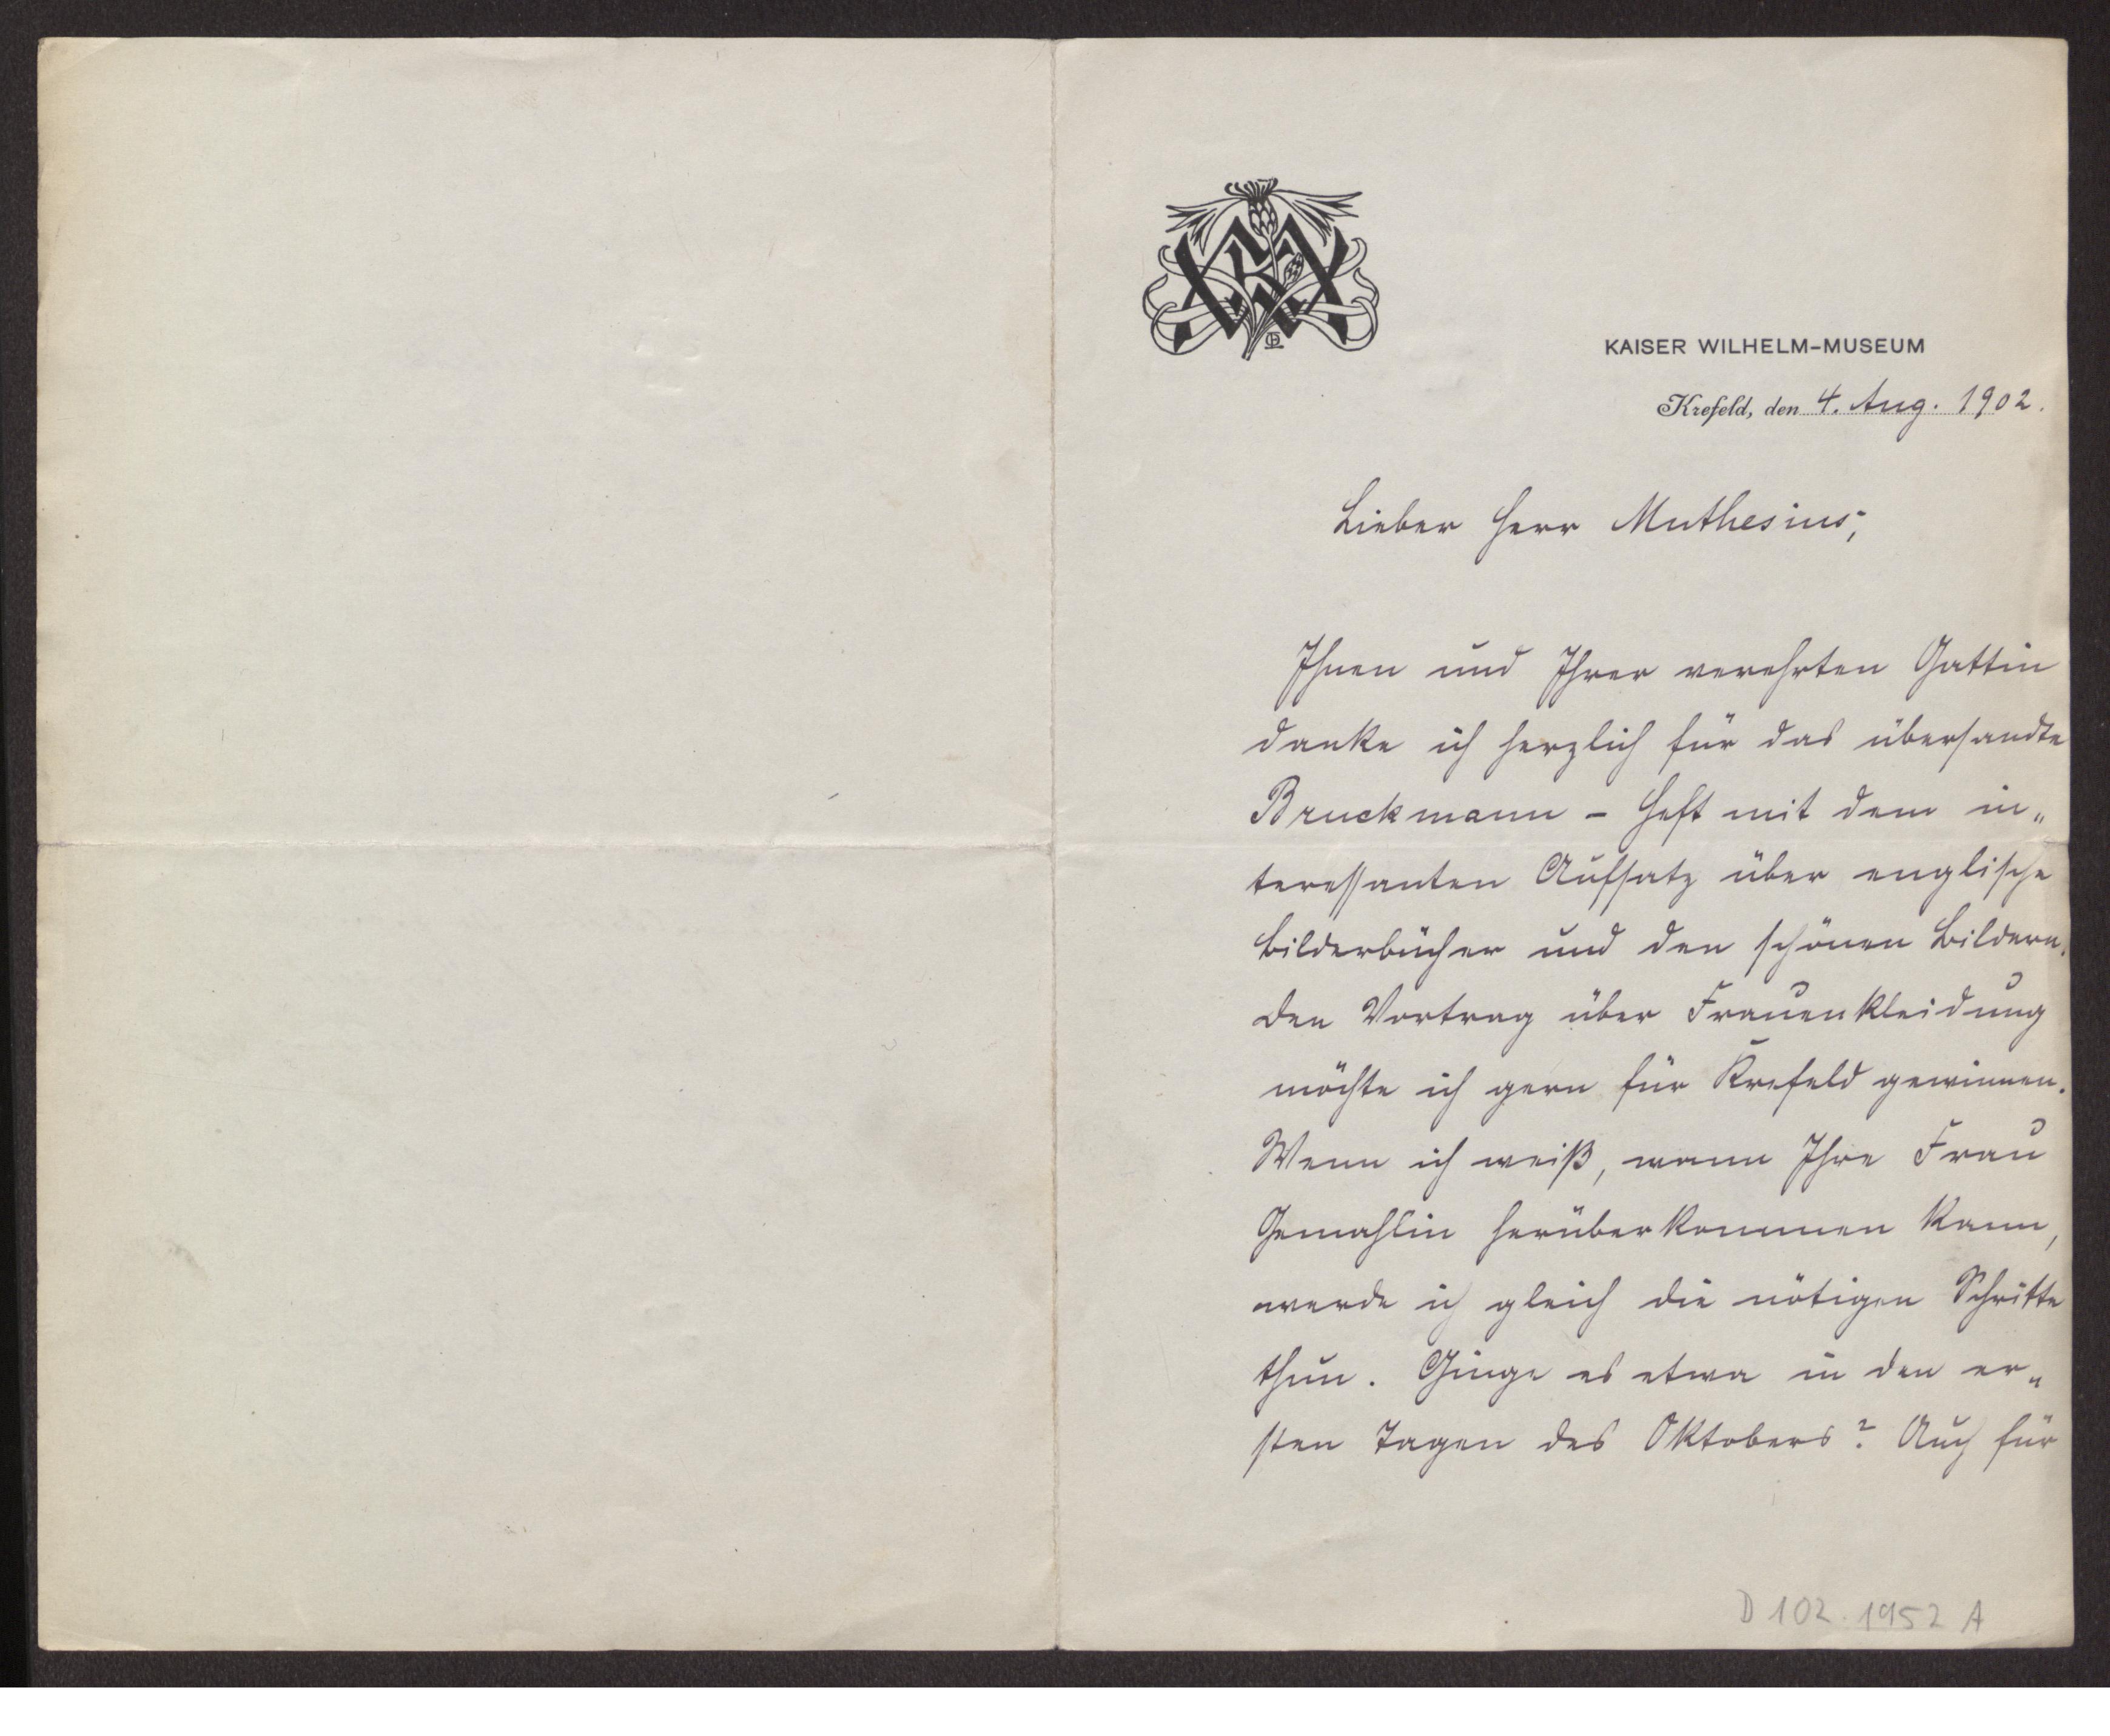 KAISER WILHELM-MUSEUM
Krefeld, den 4. Aug. 1902.
Lieber Herr Muthesius,
Ihnen und Ihrer verehrten Gattin
danke ich herzlich für das übersandte
Bruckmann - Heft mit dem in„
teressanten Aufsatz über englische
Bilderbücher und den schönen Bildern.
Den Vortrag über Frauenkleidung
möchte ich gern für Krefeld gewinnen.
Wenn ich weiß, wann Ihre Frau
Gemahlin herüberkommen kann,
werde ich gleich die nötigen Schritte
thun. Ginge es etwa in den er„
sten Tagen des Oktobers? Auch für
D 102. 1952 A